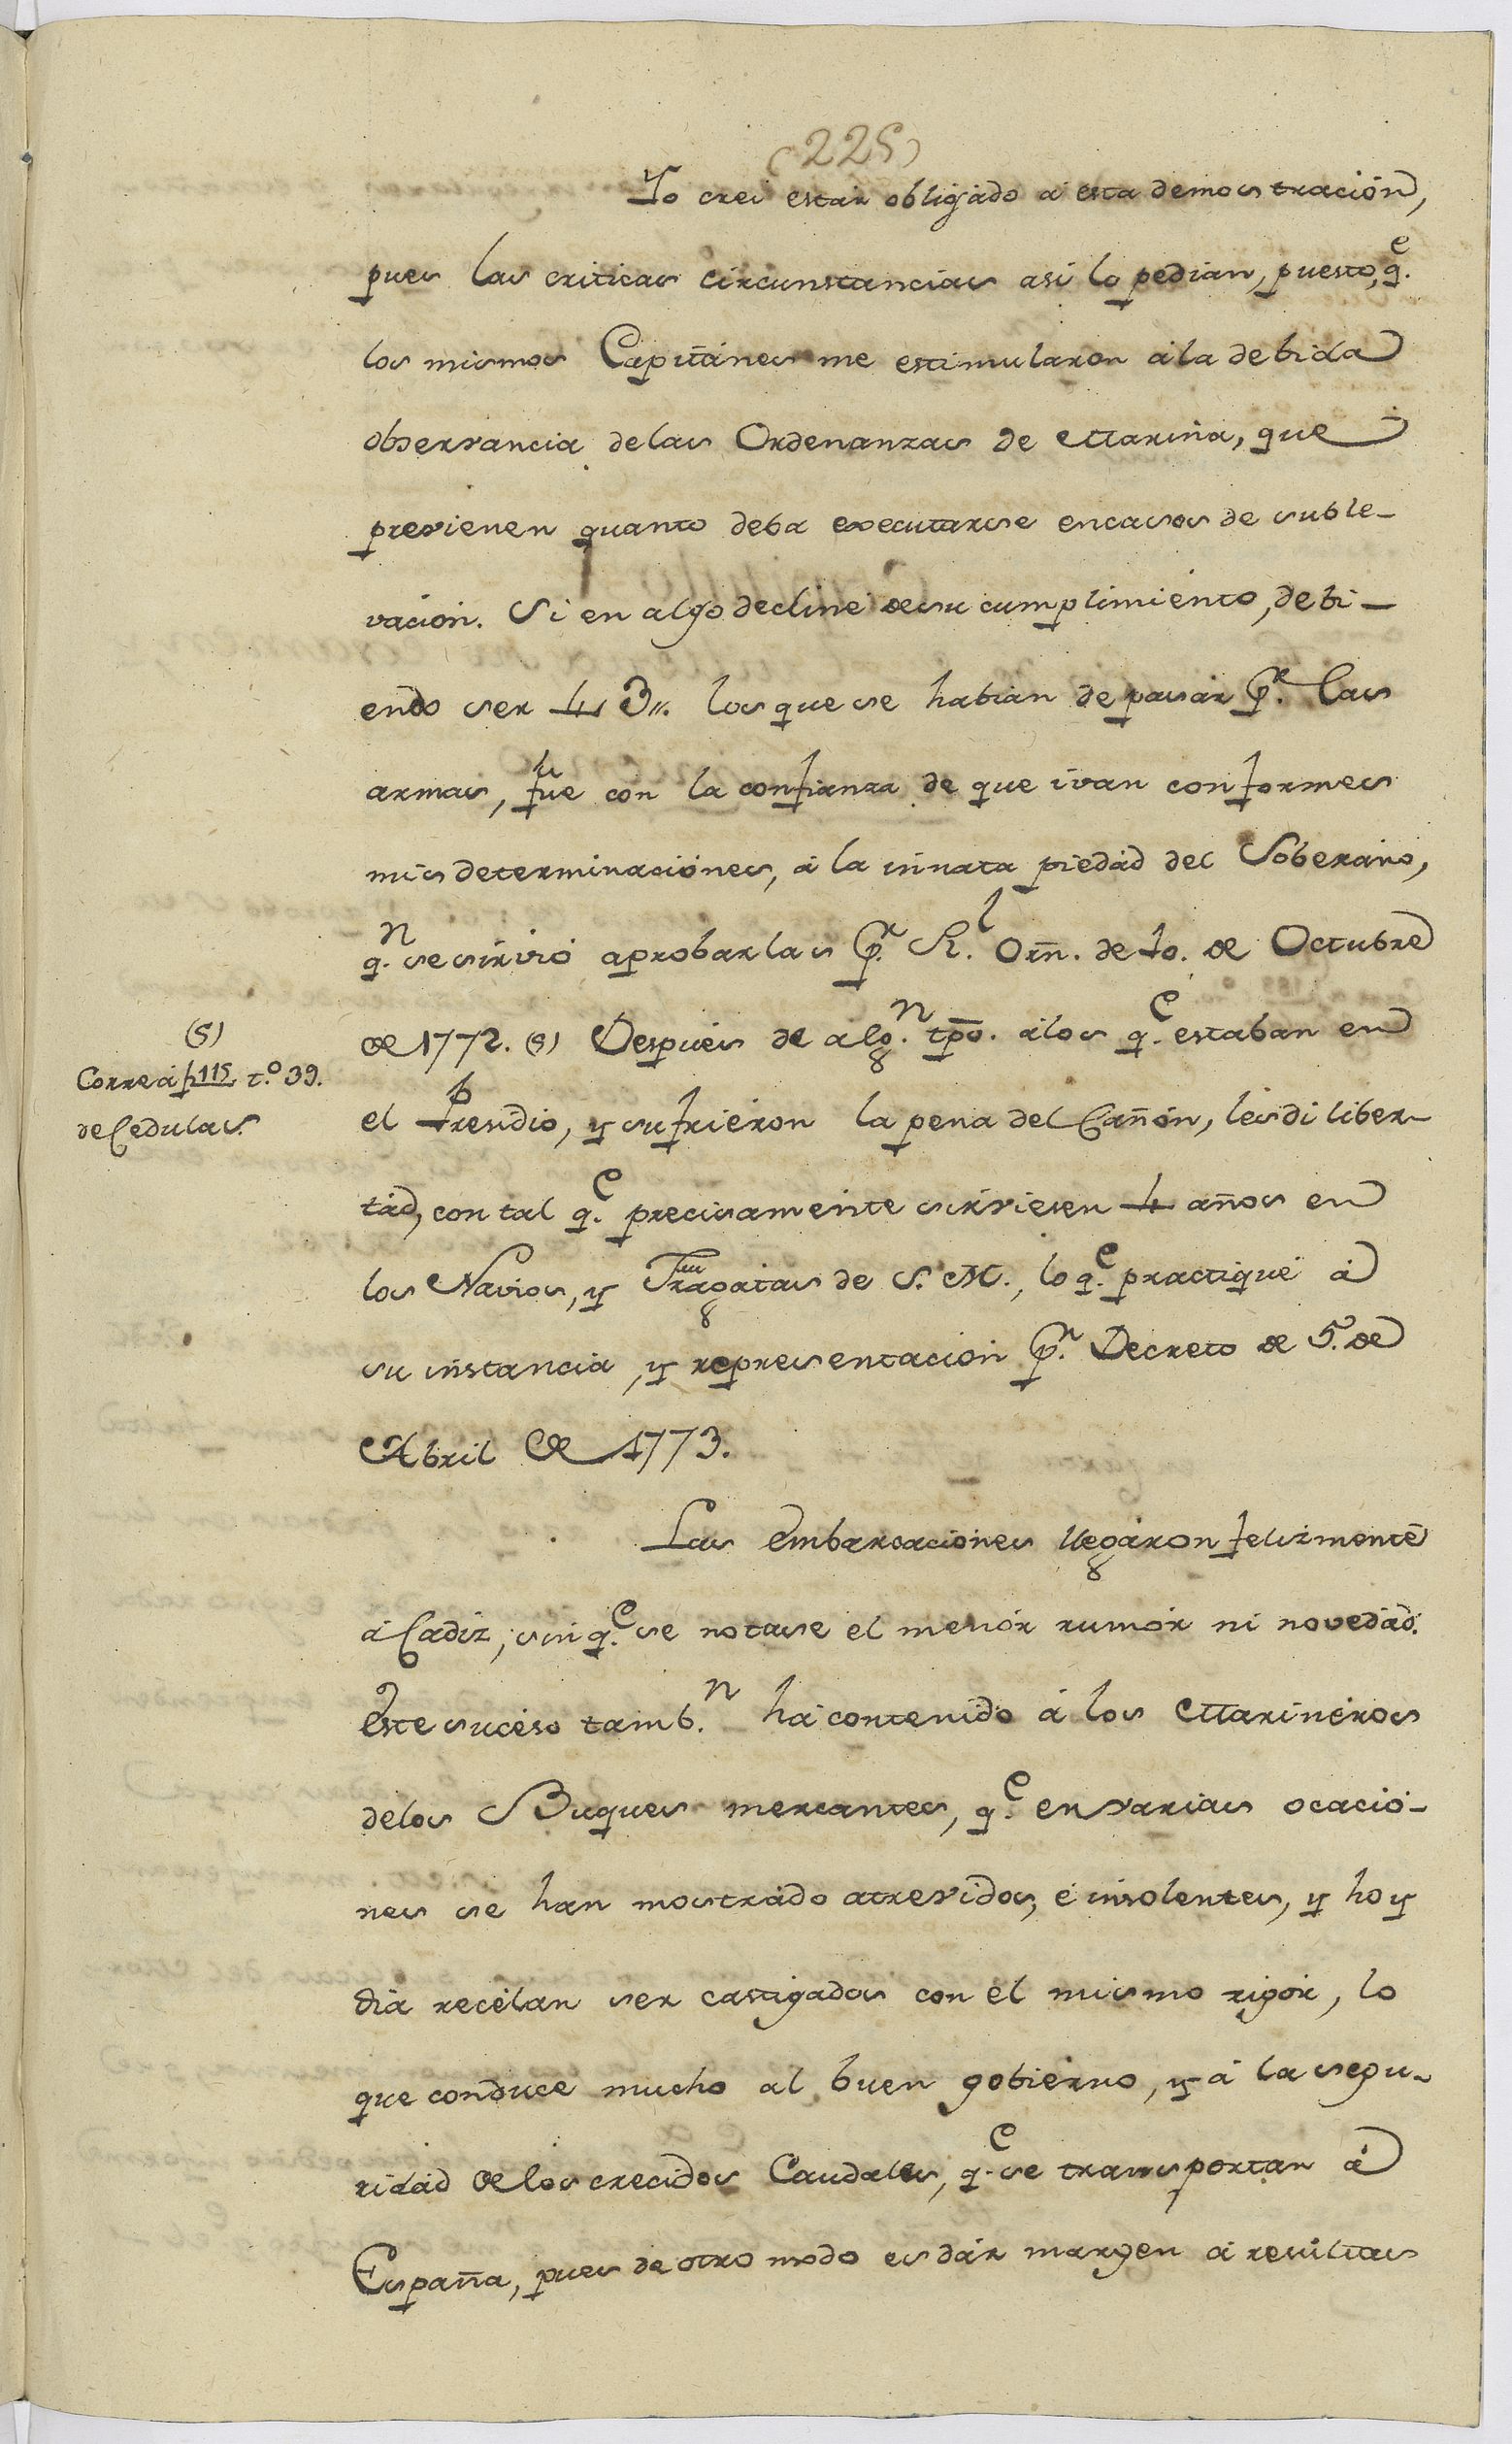 (225)
Yo crei estar obligado á esta demostración,
pues las criticas circunstancias asi lo pedian, puesto, q.e
los mismos Capitánes me estimularon á la debida
observancia delas Ordenanzas de Marina, que
previenen quanto deba executarse encasos de suble-
vación. Si en algo decliné desu cumplimiento, debi-
endo ser 43,, los que se habian de pasár p.r las
armas, fue con la confianza de que ivan conformes
mis determinaciónes, á la innata piedád del Soberano,
q.n sesirvió aprobarlas p.r R.l Orn. de 10. de Octubre
de 1772. (S) Después de alg.n tpo. álos q.e estaban en
(S)
Corre á f 115 t.o 39.
de Cedulas.
el Presidio, y sufriéron la pena del Cañón, lesdi liber-
tád, con tal q.e precisamente sirviesen 4 años en
los Navios, y Fragatas de S. M., lo q.e practiqué á
su instancia, y representación p.r Decreto de 5. de
Abril de 1773.
Las embarcaciónes llegáron felizmente
á Cadiz, sin q.e se notase el menór rumór ni novedád.
Este suceso tamb.n há contenido á los Marineros
delos Buques mercantes, q.e en varias ocació-
nes se han mostrádo atrevidos, é insolentes, y hoy
dia recélan ser castigados con el mismo rigór, lo
que conduce mucho al buen gobierno, y á la segu-
ridád delos crecidos Caudales, q.e se transportan á
España, pues de otro modo es dár margen á resultas